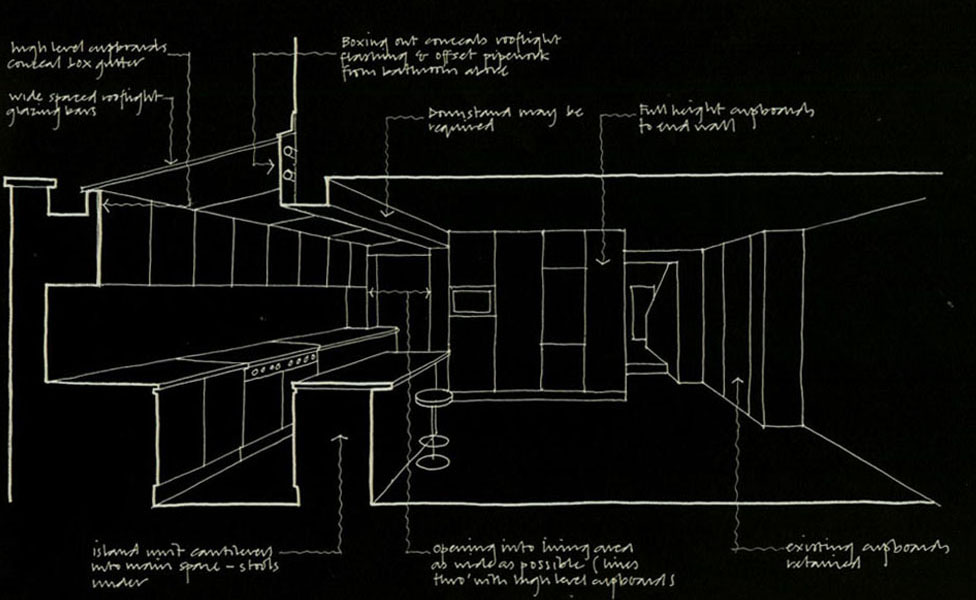 high level cupboards
conceal box gutter
wide spaced rooflight
glazing bars
Boxing out conceals rooflight
flashing & offset pipework
from bathroom above
Downstand may be
required
Full height cupboards
to end wall
island unit cantilevers
into main space – stools
under
opening into living area
as wide as possible (lines
thro' with high level cupboards
existing cupboards
retained